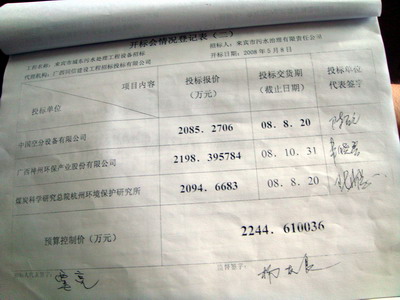 开标会情况登记表（二）
工程名称：来宾市城东污水处理工程设备招标 招标人：来宾市污水治理有限责任公司
代理机构：广西同信建设工程招标投标有限公司 开标日期：2008年5月8日
项目内容 投标报价（万元） 投标交货期（截止日期） 投标单位代表签字
投标单位
中国空分设备有限公司 2085.2706 08.8.20
广西神州环保产业股份有限公司 2198.395784 08.10.31
煤炭科学研究总院杭州环境保护研究所 2094.6683 08.8.20
预算控制价（万元） 2244.610036
监督签字：